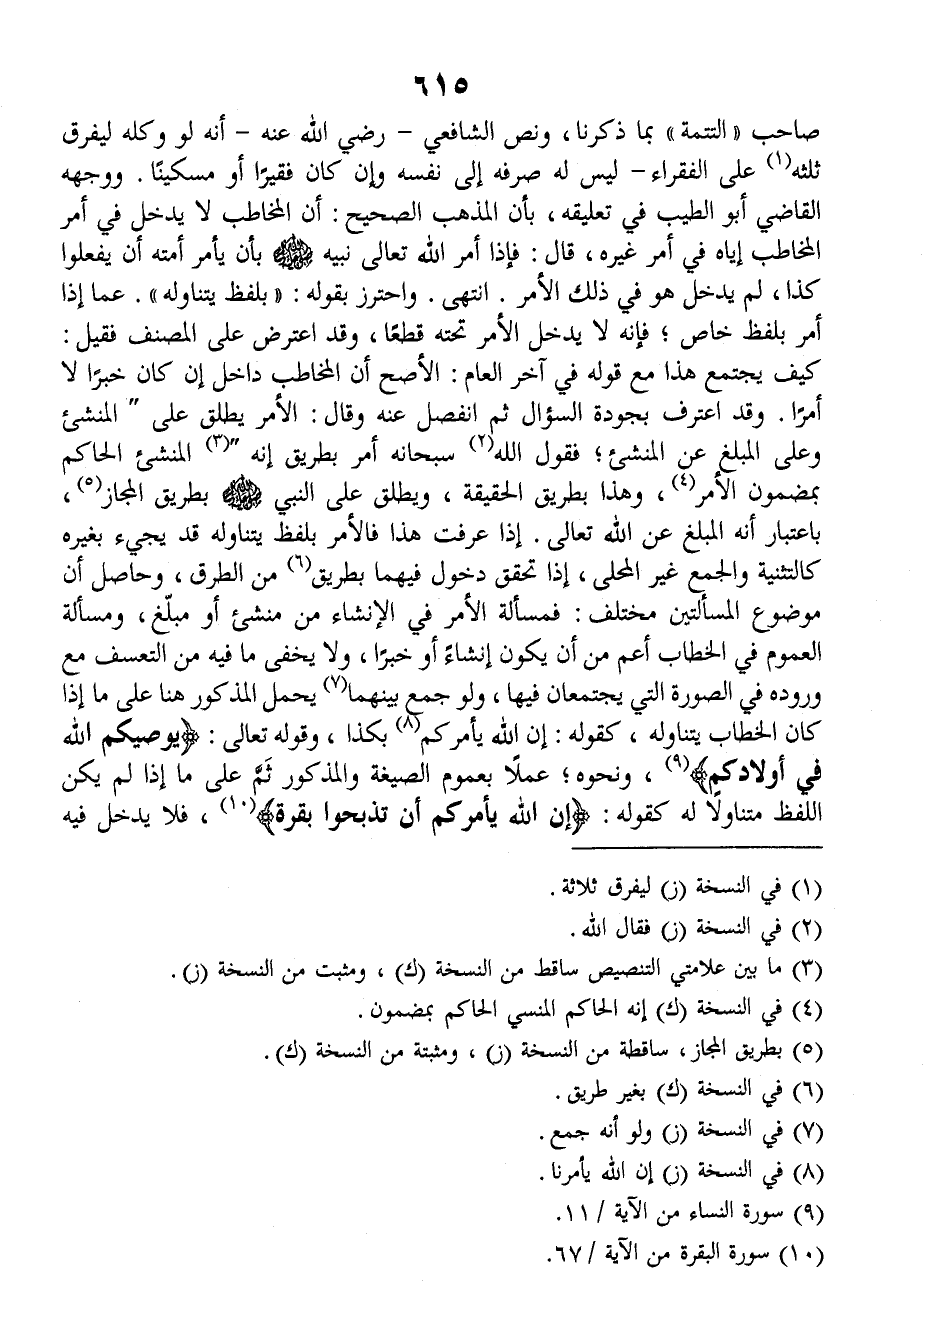 ٦١٥
صاحب «التتمة» بما ذكرنا، ونص الشافعي - رضي الله عنه - أنه لو وكله ليفرق
ثلثه(١) على الفقراء- ليس له صرفه إلى نفسه وإن كان فقيرًا أو مسكينًا. ووجهه
القاضي أبو الطيب في تعليقه، بأن المذهب الصحيح: أن المخاطب لا يدخل في أمر
المخاطب إياه في أمر غيره، قال: فإذا أمر الله تعالى نبيه ﷺ بأن يأمر أمته أن يفعلوا
كذا، لم يدخل هو في ذلك الأمر. انتهى. واحترز بقوله: «بلفظ يتناوله». عما إذا
أمر بلفظ خاص؛ فإنه لا يدخل الأمر تحته قطعًا، وقد اعترض على المصنف فقيل:
كيف يجتمع هذا مع قوله في آخر العام: الأصح أن المخاطب داخل إن كان خبرًا لا
أمرًا. وقد اعترف بجودة السؤال ثم انفصل عنه وقال: الأمر يطلق على " المنشئ
وعلى المبلغ عن المنشئ؛ فقول الله(٢) سبحانه أمر بطريق إنه "(٣) المنشئ الحاكم
بمضمون الأمر(٤)، وهذا بطريق الحقيقة، ويطلق على النبي ﷺ بطريق المجاز(٥)،
باعتبار أنه المبلغ عن الله تعالى. إذا عرفت هذا فالأمر بلفظ يتناوله قد يجيء بغيره
كالتثنية والجمع غير المحلى، إذا تحقق دخول فيهما بطريق(٦) من الطرق، وحاصل أن
موضوع المسألتين مختلف: فمسألة الأمر في الإنشاء من منشئ أو مبلّغ، ومسألة
العموم في الخطاب أعم من أن يكون إنشاءً أو خبرًا، ولا يخفى ما فيه من التعسف مع
وروده في الصورة التي يجتمعان فيها، ولو جمع بينهما(٧) يحمل المذكور هنا على ما إذا
كان الخطاب يتناوله، كقوله: إن الله يأمركم(٨) بكذا، وقوله تعالى: ﴿يوصيكم الله
في أولادكم﴾(٩)، ونحوه؛ عملًا بعموم الصيغة والمذكور ثَمَّ على ما إذا لم يكن
اللفظ متناولًا له كقوله: ﴿إن الله يأمركم أن تذبحوا بقرة﴾(١٠)، فلا يدخل فيه
(١) في النسخة (ز) ليفرق ثلاثة.
(٢) في النسخة (ز) فقال الله.
(٣) ما بين علامتي التنصيص ساقط من النسخة (ك)، ومثبت من النسخة (ز).
(٤) في النسخة (ك) إنه الحاكم المنسي الحاكم بمضمون.
(٥) بطريق المجاز، ساقطة من النسخة (ز)، ومثبتة من النسخة (ك).
(٦) في النسخة (ك) بغير طريق.
(٧) في النسخة (ز) ولو أنه جمع.
(٨) في النسخة (ز) إن الله يأمرنا.
(٩) سورة النساء من الآية /١١.
(١٠) سورة البقرة من الآية /٦٧.